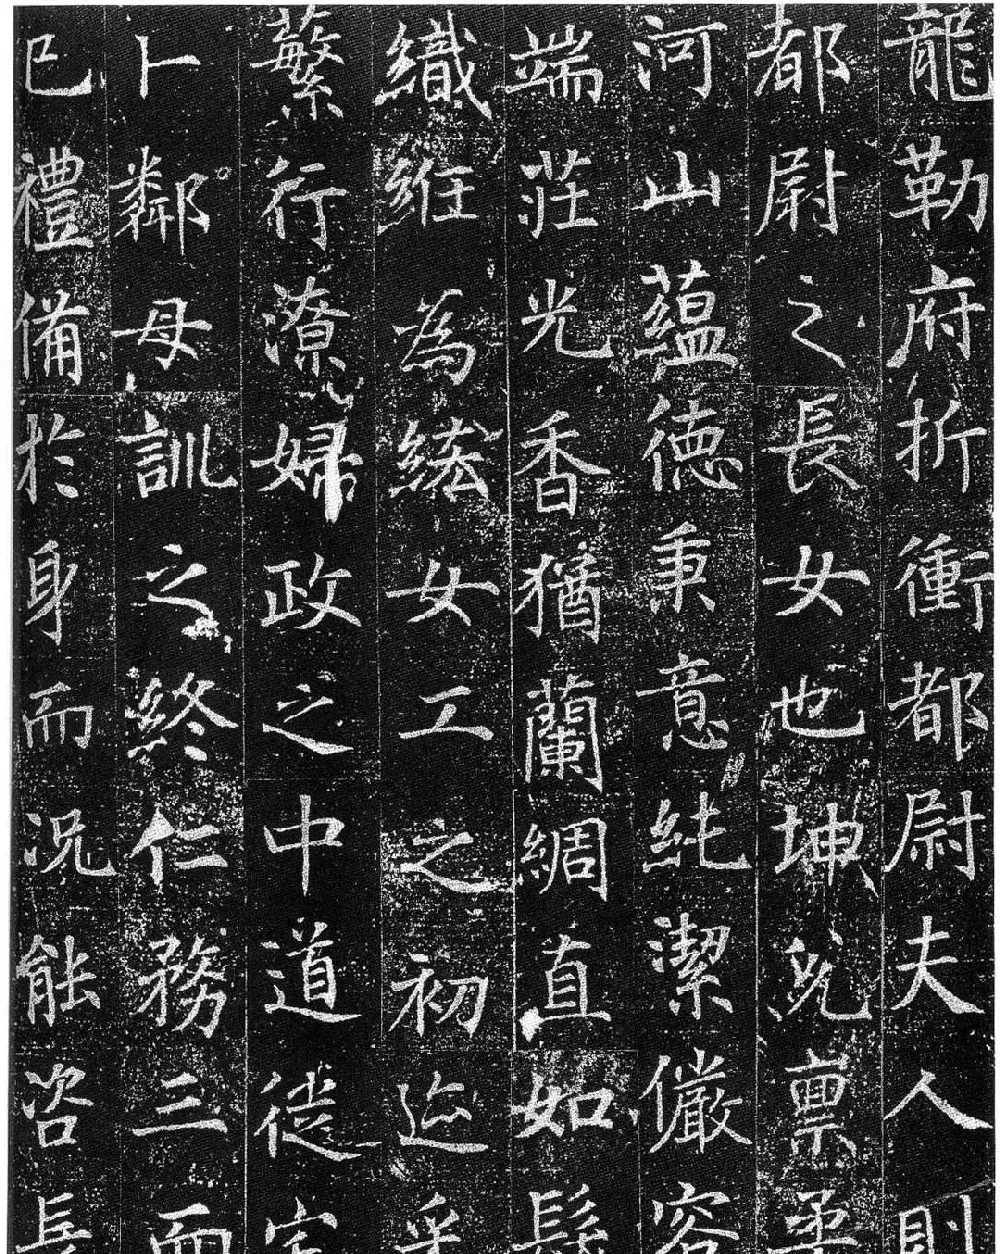 龍勒府折衝都尉夫人則
都尉之長女也坤皃禀柔
河山蘊德秉意純潔儼容
端莊光香猶蘭綢直如髮
織紝為綋女工之初迹采
蘩行潦婦政之中道徙宅
卜鄰母訓之終仁務三而
已禮備於身而況能咨長